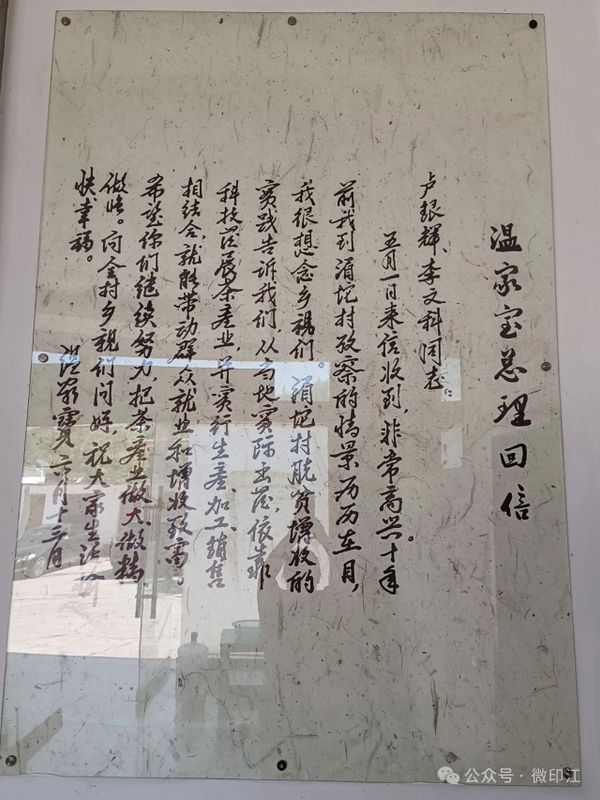 温家宝总理回信
卢银辉、李文科同志:
五月一日来信收到,非常高兴。十年
前我到涓坨村考察的情景历历在目,
我很想念乡亲们。涓坨村脱贫增收的
实践告诉我们,从当地实际出发,依靠
科技发展茶产业,并实行生产、加工、销售
相结合,就能带动群众就业和增收致富。
希望你们继续努力,把茶产业做大、做精、
做好。向全村乡亲们问好,祝大家生活愉
快幸福。
温家宝 六月十三日
公众号·微印江